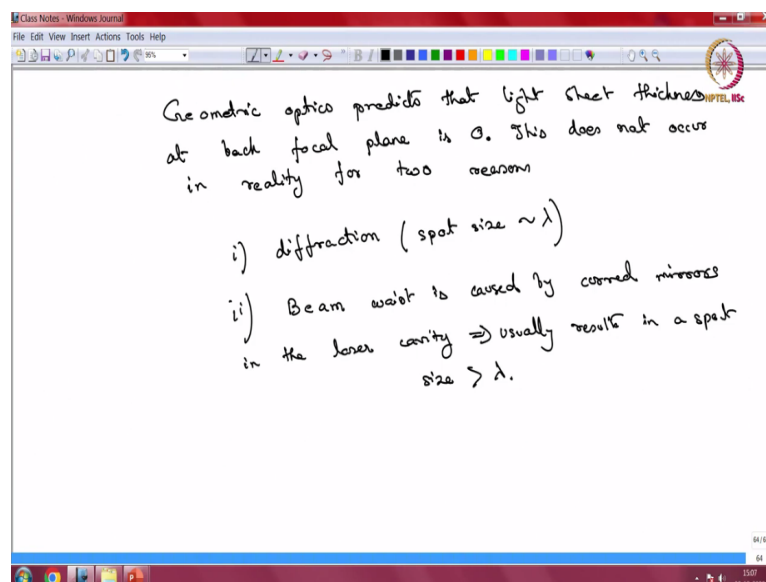 Class Notes - Windows Journal
File Edit View Insert Actions Tools Help
95%
B I
NPTEL, IISc
Geometric optics predicts that light sheet thickness
at back focal plane is 0. This does not occur
in reality for two reasons
i) diffraction ( spot size ~ λ)
ii) Beam waist is caused by curved mirrors
in the laser cavity ⇒ usually results in a spot
size > λ.
64/6
64
15:07